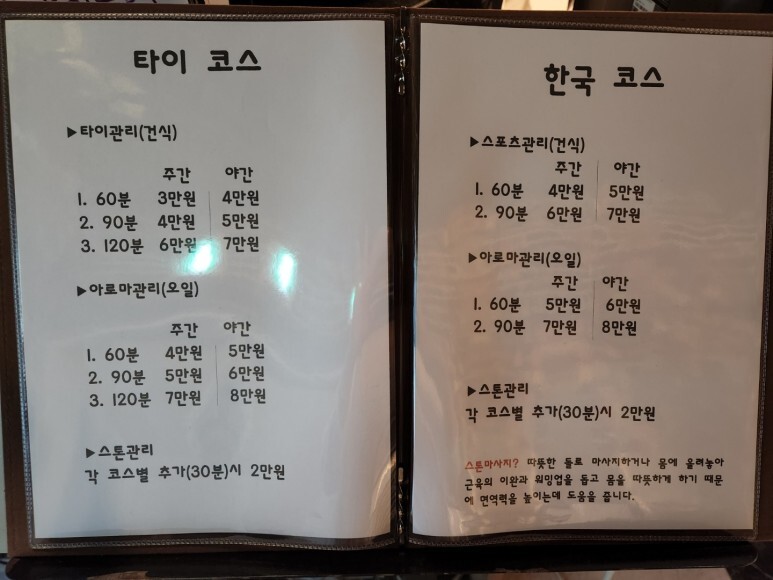 타이 코스
▶타이관리(건식)
주간 야간
1. 60분 3만원 4만원
2. 90분 4만원 5만원
3. 120분 6만원 7만원
▶아로마관리(오일)
주간 야간
1. 60분 4만원 5만원
2. 90분 5만원 6만원
3. 120분 7만원 8만원
▶스톤관리
각 코스별 추가(30분)시 2만원
한국 코스
▶스포츠관리(건식)
주간 야간
1. 60분 4만원 5만원
2. 90분 6만원 7만원
▶아로마관리(오일)
주간 야간
1. 60분 5만원 6만원
2. 90분 7만원 8만원
▶스톤관리
각 코스별 추가(30분)시 2만원
스톤마사지? 따뜻한 돌로 마사지하거나 몸에 올려놓아
근육의 이완과 워밍업을 돕고 몸을 따뜻하게 하기 때문
에 면역력을 높이는데 도움을 줍니다.